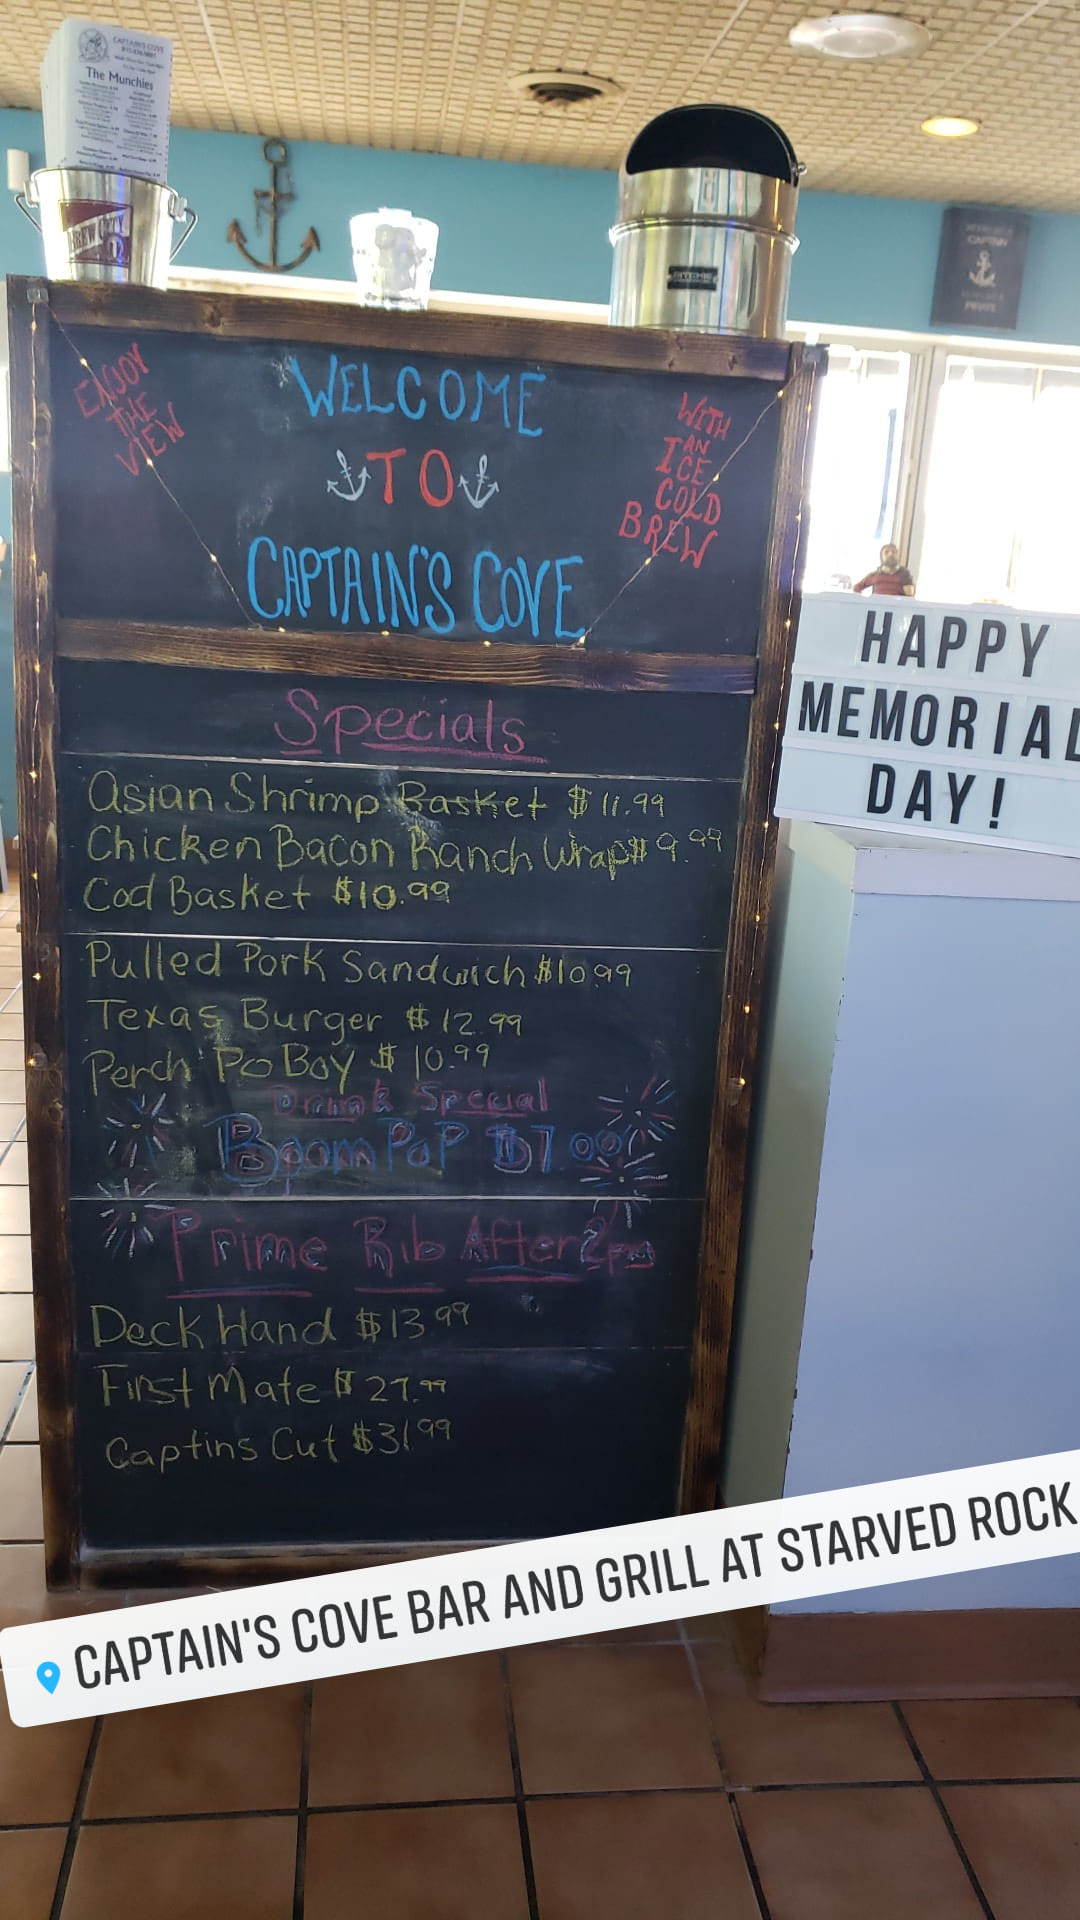 CAPTAIN'S COVE
The Munchies
BREW CITY
CAPTAIN
PIRATE
ENJOY
THE
VIEW
WELCOME
TO
CAPTAIN'S COVE
WITH
AN
ICE
COLD
BREW
HAPPY
MEMORIAL
DAY!
Specials
Asian Shrimp Basket $11.99
Chicken Bacon Ranch Wrap $9.99
Cod Basket $10.99
Pulled Pork Sandwich $10.99
Texas Burger $12.99
Perch Po Boy $10.99
Drink Special
Boom PoP $7.00
Prime Rib After 2pm
Deck Hand $13.99
First Mate $27.99
Captins Cut $31.99
CAPTAIN'S COVE BAR AND GRILL AT STARVED ROCK